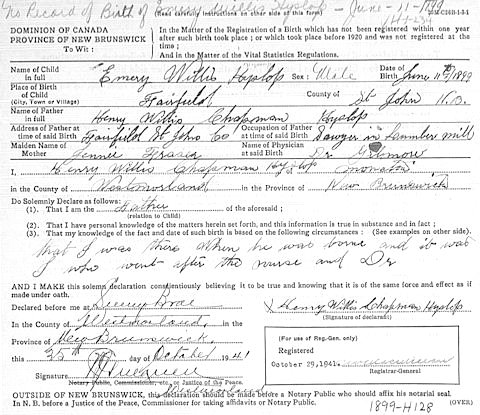 No Record of Birth of Emery Willis Hyslop - June - 11 - 1899
(Read carefully instructions on other side)
DOMINION OF CANADA
PROVINCE OF NEW BRUNSWICK
To Wit:
In the Matter of the Registration of a Birth which has not been registered within one year
after such birth took place; or which took place before 1920 and was not registered at the
time;
And in the Matter of the Vital Statistics Regulations.
Name of Child in full Emery Willis Hyslop Sex: Male Date of Birth June 11th/1899
Place of Birth of Child (City, Town or Village) Fairfield County of St John N.B.
Name of Father in full Henry Willis Chapman Hyslop
Address of Father at time of said Birth Fairfield St John Co Occupation of Father at time of said Birth Sawyer in Lumber mill
Maiden Name of Mother Jennie Name of Physician at said Birth Dr Gilmore
I, Henry Willis Chapman Hyslop
in the County of Westmorland in the Province of New Brunswick
Do Solemnly Declare as follows:
(1). That I am the Father of the aforesaid;
(relation to Child)
(2). That I have personal knowledge of the matters herein set forth, and this information is true in substance and in fact;
(3). That my knowledge of the fact and date of such birth is based on the following circumstances (see examples on other side).
that I was there when he was borne and it was
I who went after the nurse and Dr
AND I MAKE this solemn declaration conscientiously believing it to be true and knowing that it is of the same force and effect as if
made under oath.
Declared before me at Sunny Brae
In the County of Westmorland, in the
Province of New Brunswick,
this 25th day of October 1941
Signature
Notary Public, Commissioner, etc., or Justice of the Peace.
Henry Willis Chapman Hyslop
(Signature of declarant)
(For use of Reg.-Gen. only)
Registered
October 29, 1941.
Registrar-General
OUTSIDE OF NEW BRUNSWICK, this declaration should be made before a Notary Public who should affix his notarial seal.
In N.B. before a Justice of the Peace, Commissioner for taking affidavits or Notary Public.
(OVER)
1899-H128